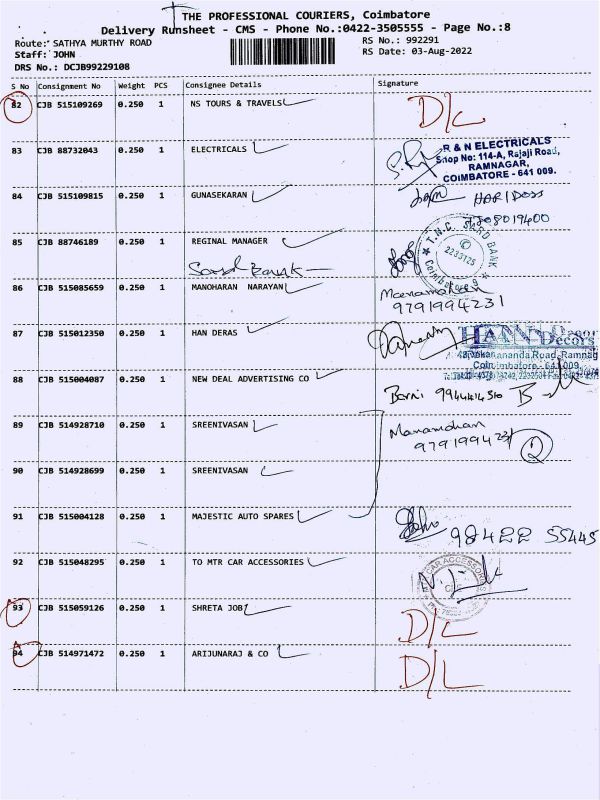 THE PROFESSIONAL COURIERS, Coimbatore
Delivery Runsheet - CMS - Phone No.:0422-3505555 - Page No.:8
Route: SATHYA MURTHY ROAD
RS No.: 992291
Staff: JOHN
RS Date: 03-Aug-2022
DRS No.: DCJB99229108
S No Consignment No Weight PCS Consignee Details Signature
82 CJB 515109269 0.250 1 NS TOURS & TRAVELS D/C
83 CJB 88732043 0.250 1 ELECTRICALS
R & N ELECTRICALS
Shop No: 114-A, Rajaji Road,
RAMNAGAR,
COIMBATORE - 641 009.
84 CJB 515109815 0.250 1 GUNASEKARAN HARIDOSS
7708019400
85 CJB 88746189 0.250 1 REGINAL MANAGER
T.N.C. SARD BANK
2233125
Coimbatore-9
Bank
86 CJB 515085659 0.250 1 MANOHARAN NARAYAN
Manamohan
9791994231
87 CJB 515012350 0.250 1 HAN DERAS
Decors
88 CJB 515004087 0.250 1 NEW DEAL ADVERTISING CO
89 CJB 514928710 0.250 1 SREENIVASAN
Manamohan
9791994231
90 CJB 514928699 0.250 1 SREENIVASAN
91 CJB 515004128 0.250 1 MAJESTIC AUTO SPARES
98422 55445
92 CJB 515048295 0.250 1 TO MTR CAR ACCESSORIES
CAR ACCESSORIES
93 CJB 515059126 0.250 1 SHRETA JOB D/L
94 CJB 514971472 0.250 1 ARIJUNARAJ & CO D/L